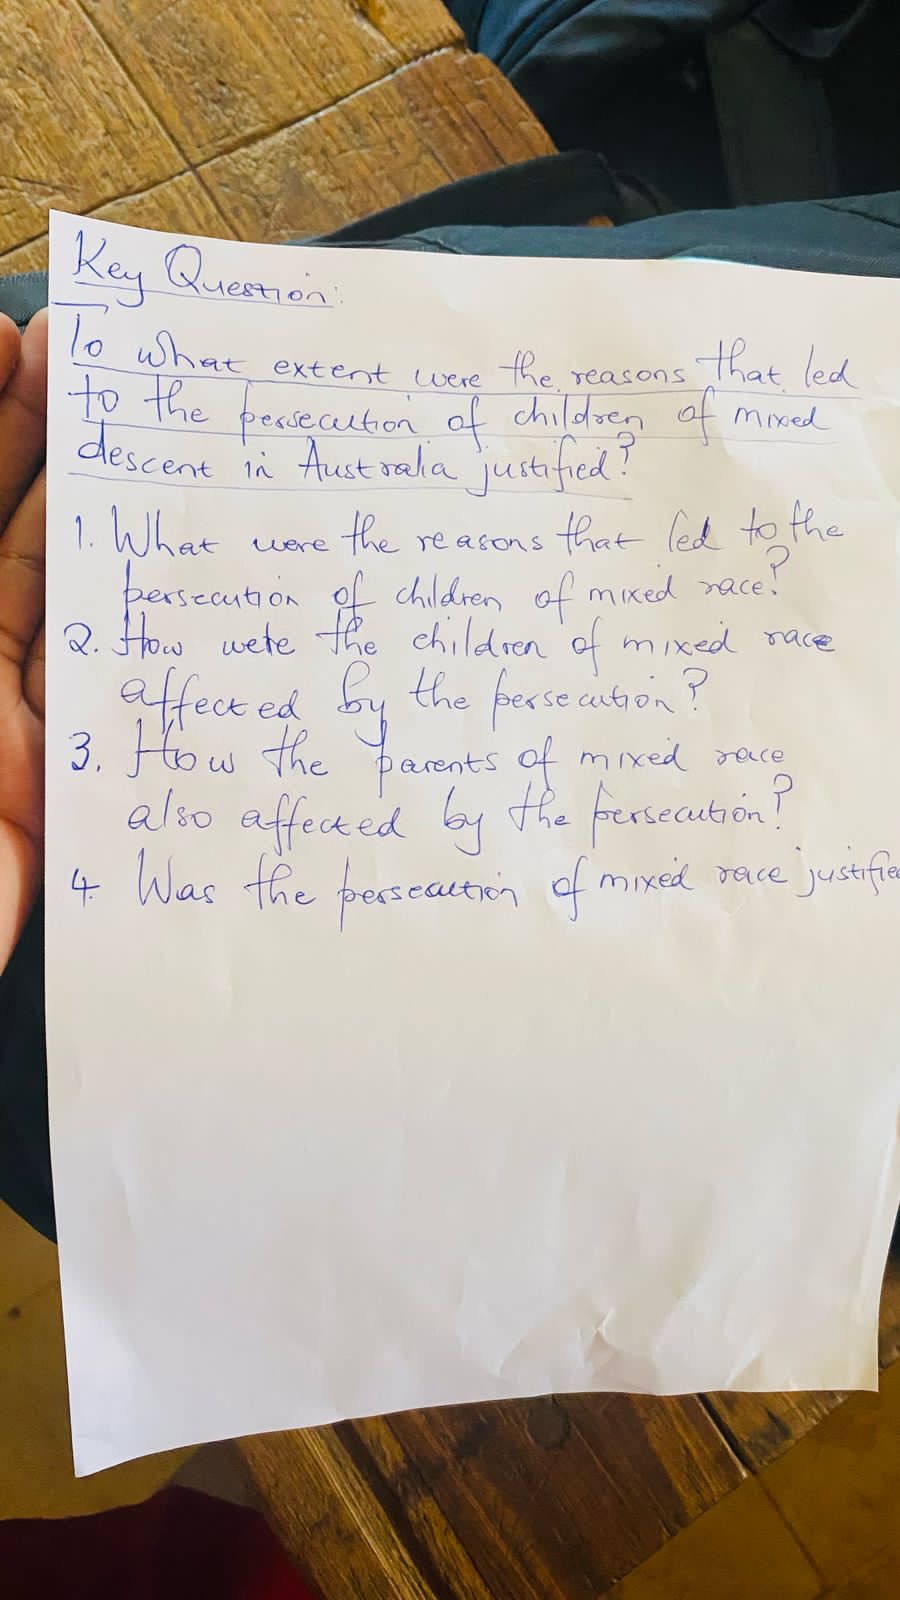 Key Question:
To what extent were the reasons that led
to the persecution of children of mixed
descent in Australia justified?
1. What were the reasons that led to the
persecution of children of mixed race?
2. How were the children of mixed race
affected by the persecution?
3. How the parents of mixed race
also affected by the persecution?
4. Was the persecution of mixed race justifie